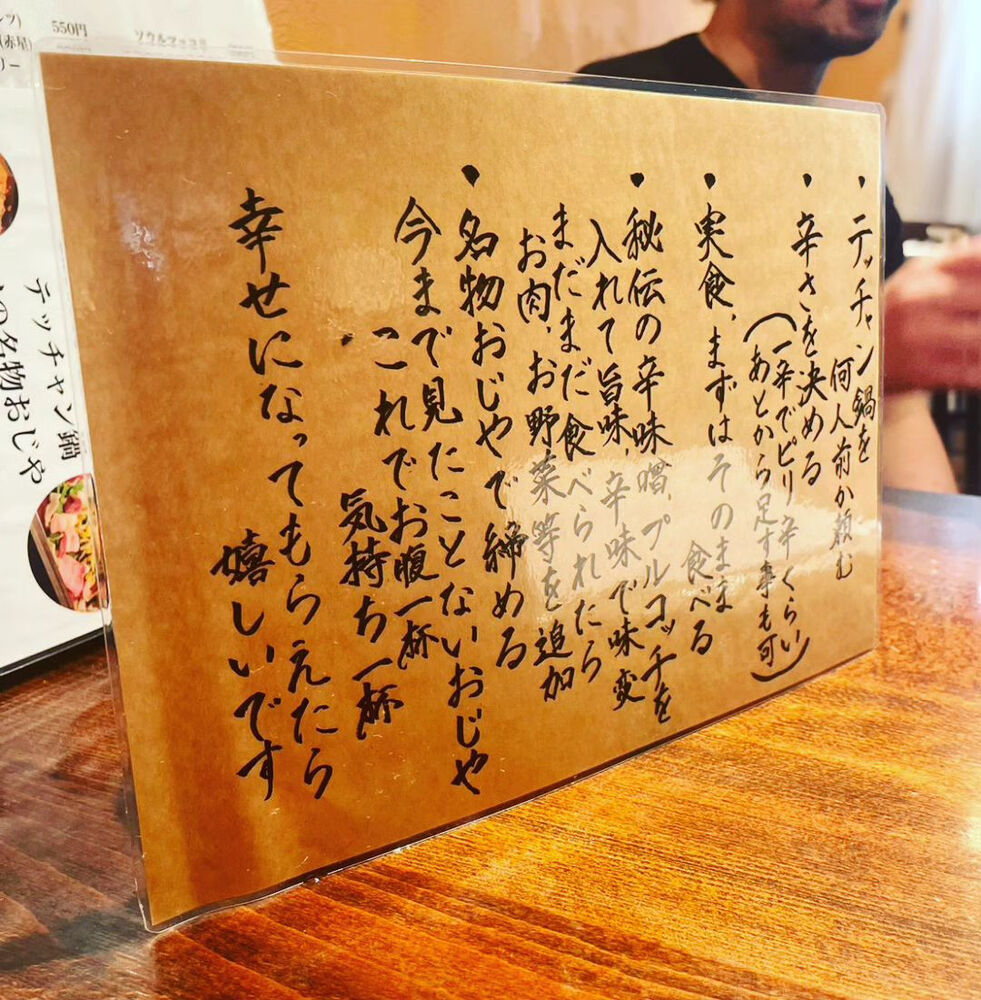 ・テッチャン鍋を
何人前か頼む
・辛さを決める
(一辛でピリ辛くらい
あとから足す事も可)
・実食、まずはそのまま
食べる
・秘伝の辛味噌、プルコッチを
入れて旨味、辛味で味変
まだまだ食べられたら
お肉、お野菜等を追加
・名物おじやで締める
今まで見たことないおじや
これでお腹一杯
気持ち一杯
幸せになってもらえたら
嬉しいです
550円
ソウルマッコリ
(赤星)
リー
テッチャン鍋
の名物おじや